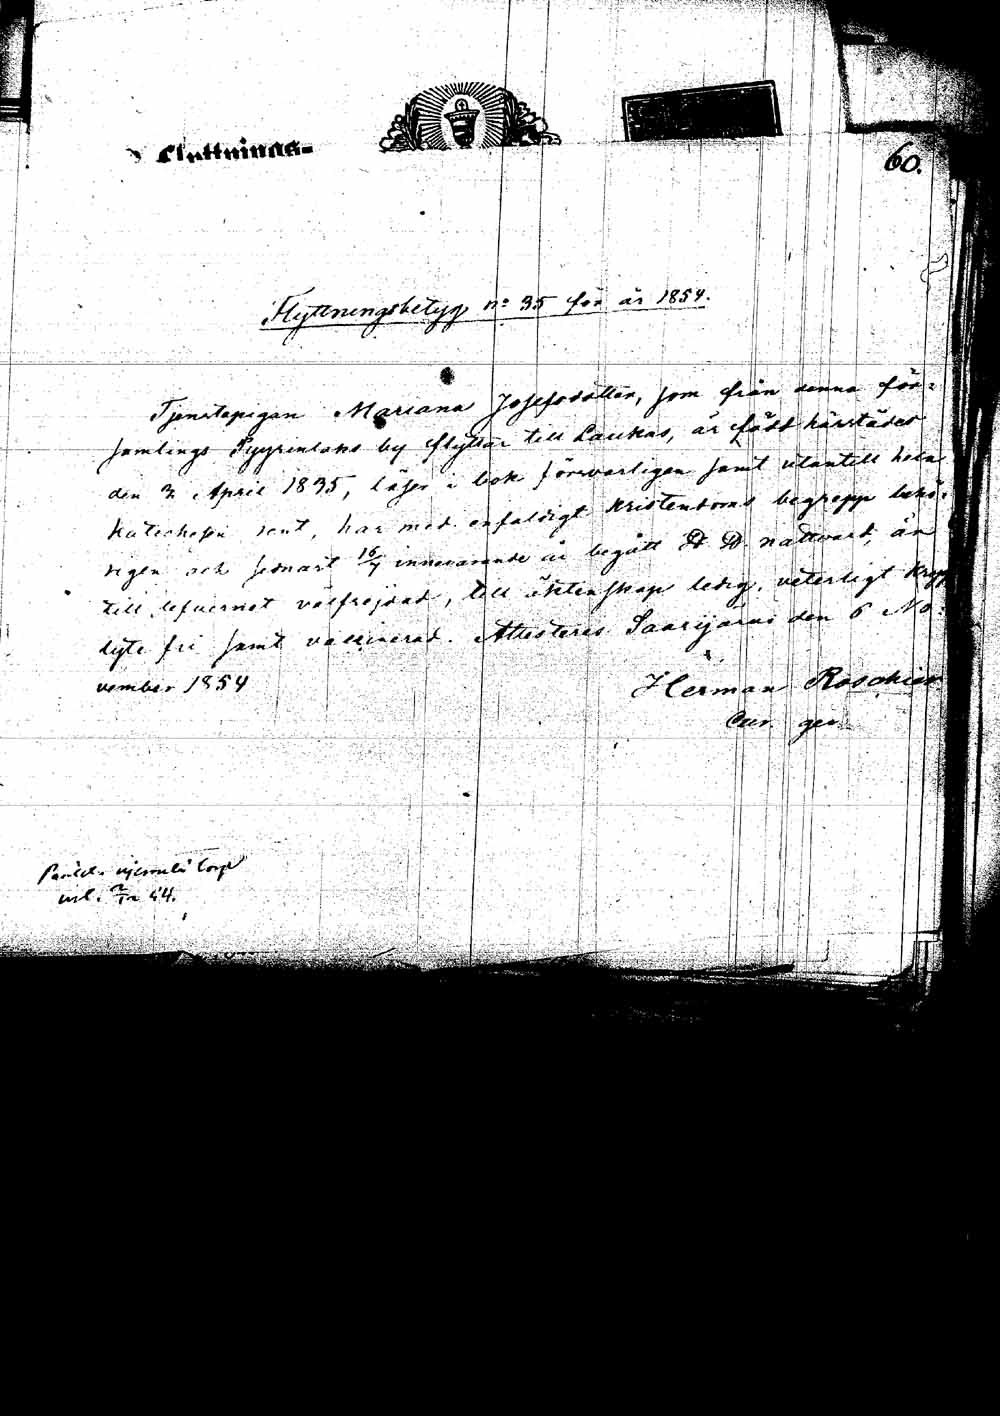 Flyttnings-
60.
Flyttningsbetyg nº 35 för år 1854.
Tjenstepigan Mariana Josefsdotter, som från denna för=
samlings Pyyrinlaks by flyttar till Laukas, är född härstädes
den 2 April 1835, läser i bok försvarligen samt utantill hela
Katechesen rent, har med enfaldigt Kristendoms begrepp
och sednast 16/7 innevarande år begått nattvard, än
till lefvernet välfrejdad, till äktenskap ledig, veterligt
lyte fri samt vaccinerad. Attesteras Saarijärvi den 6 No=
vember 1854
Herman Roschier